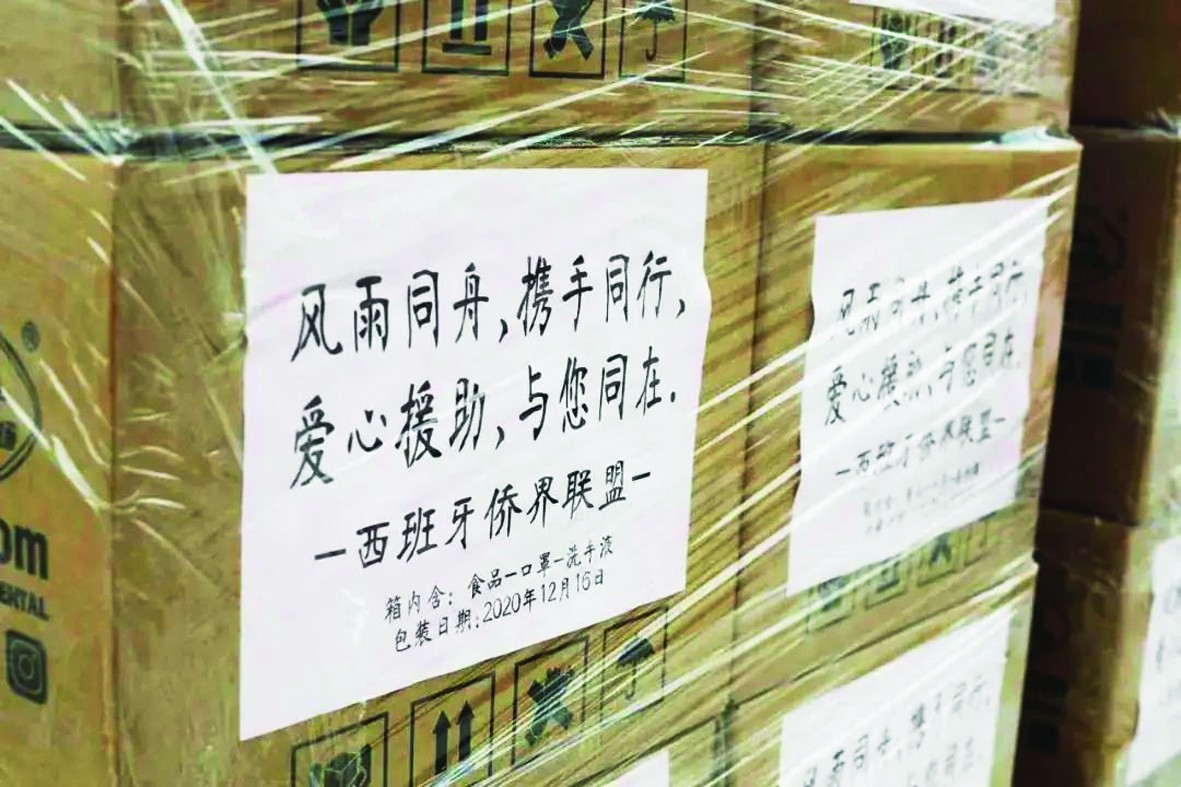 风雨同舟,携手同行,
爱心援助,与您同在.
-西班牙侨界联盟-
箱内含: 食品-口罩-洗手液
包装日期:2020年12月16日
风雨同舟,携手同行,
爱心援助,与您同在.
-西班牙侨界联盟-
风雨同舟,携手同行,
与您同在.
om
ENTAL
®